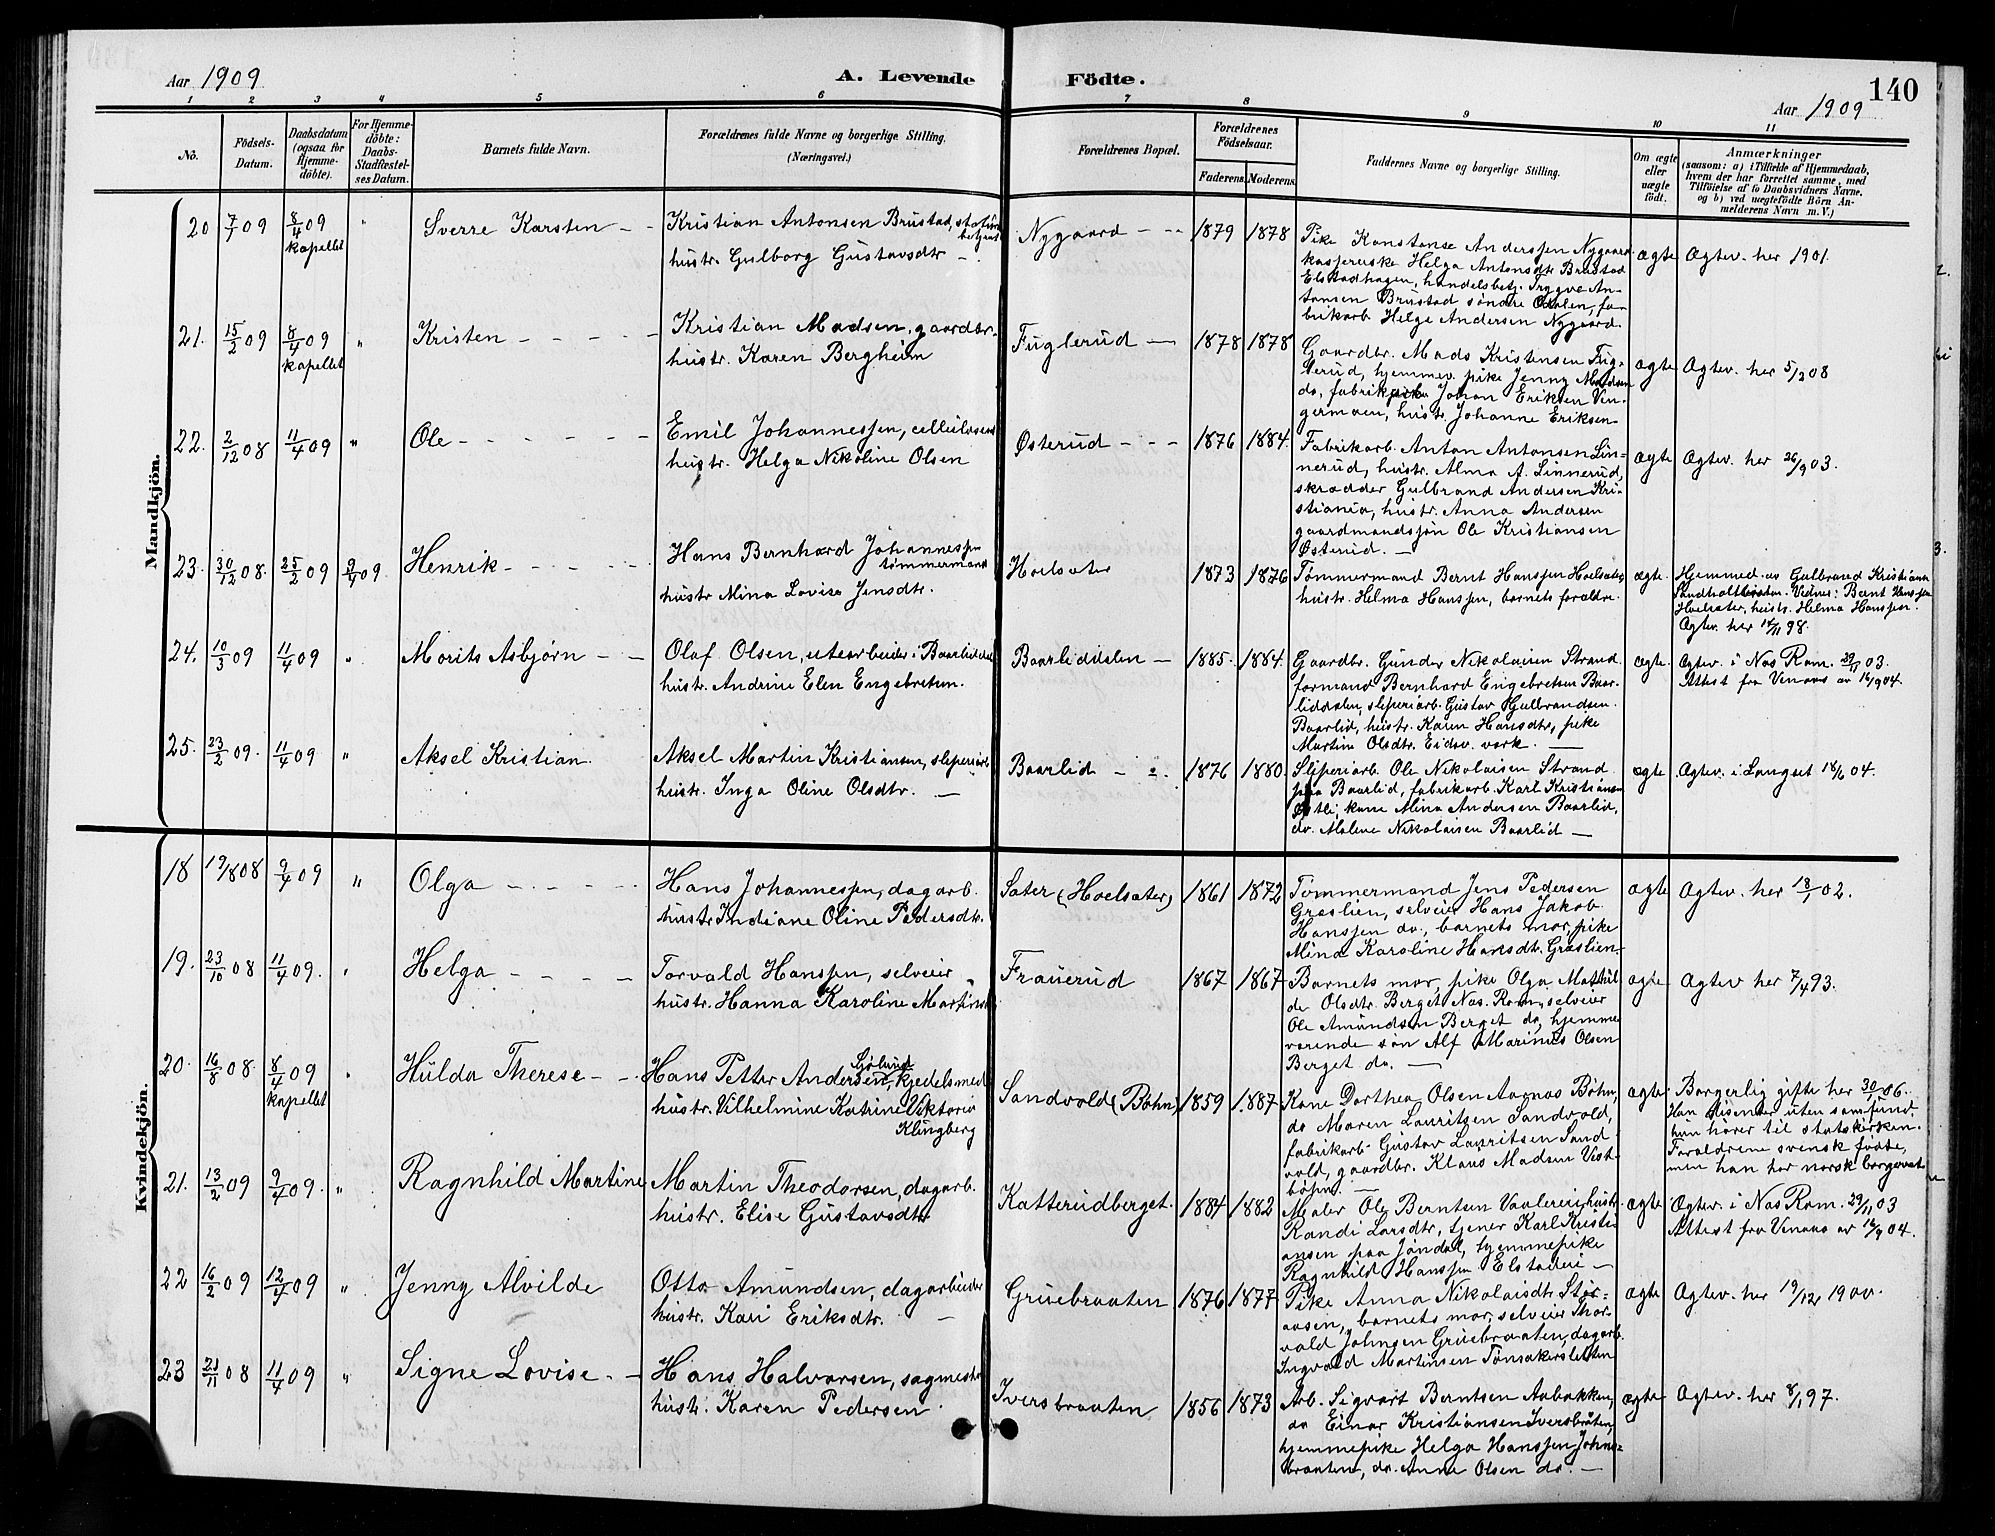 140
Aar 1909
A. Levende Födte.
Aar 1909
1 2 3 4 5 6 7 8 9 10 11
No.
Födsels-Datum.
Daabsdatum (ogsaa for Hjemme-döbte).
For Hjemme-döbte: Daabs-Stadfæstel-ses Datum.
Barnets fulde Navn.
Forældrenes fulde Navne og borgerlige Stilling.
(Næringsvei.)
Forældrenes Bopæl.
Forældrenes Födselsaar.
Faderens.
Moderens.
Faddernes Navne og borgerlige Stilling.
Om ægte eller uægte födt.
Anmærkninger
(saasom: a) i Tilfælde af Hjemmedaab,
hvem der har forrettet samme, med
Tilföielse af to Daabsvidners Navne.
og b) ved uægtefödte Börn An-
melderens Navn m. V.)
Mandkjön.
20 7/1 09 8/4 09 kapellet " Sverre Karsten - -
Kristian Antonsen Brustad,
hustr. Gulborg Gustavsdtr -
Nygaard - - 1879 1878
Pike Konstanse Anderssen Nygaard
Helga Antonsdtr Brustad
Elstadhagen, handelsbetj. Trygve An-
tonsen Brustad söndre Odalen, fa-
brikarb. Helge Andersen Nygaard.
ægte Ægtev. her 1901.
21. 15/2 09 8/4 09 kapellet " Kristen - - - -
Kristian Madsen, gaardbr.
hustr. Karen Bergheim
Fuglerud - 1878 1878
Gaardbr. Mads Kristensen Fug-
lerud, hjemmev. pike Jenny Madsen
do, Johan Eriksen Vin-
germoen, hustr. Johanne Eriksen
ægte Ægtev. her 5/2 08
22. 2/12 08 11/4 09 " Ole - - - - - -
Emil Johannessen,
hustr. Helga Nikoline Olsen
Østerud - - - 1876 1884.
Fabrikarb. Anton Antonsen Lin-
nerud, hustr. Alma A. Linnerud,
skrædder Gulbrand Andersen Kri-
stiania, hustr. Anna Andersen
gaardmandssön Ole Kristiansen
Østerud. -
ægte Ægtev. her 26/9 03.
23. 30/12 08. 25/2 09 9/4 09 Henrik - - - -
Hans Bernhard Johannessen
tömmermand
hustr Mina Lovise Jensdtr.
Hoelsæter 1873 1876
Tømmermand Bernt Hanssen Hoelsæter,
hustr. Helma Hanssen, barnets forældre.
ægte. Hjemmed. av Gulbrand Kristians
Vidner: Bernt Hanssen
Hoelsæter, hustr. Helma Hanssen.
Ægtev. her 14/11 98.
24. 10/3 09 11/4 09 " Morits Asbjørn - -
Olaf Olsen, utearbeider i Baarliddal.
hustr. Andrine Elen Engebretsen.
Baarliddalen - 1885. 1884.
Gaardbr. Gunder Nikolaisen Strand
formand Bernhard Engebretsen Baar-
liddalen, sliperiarb. Gustav Gulbrandsen.
Baarlid, hustr. Karen Hansdtr, pike
Martine Olsdtr. Eidsv. værk. -
ægte. Ægtev. i Nes Rom. 29/11 03.
Attest fra Venaas av 16/9 04.
25. 23/2 09. 11/4 09 " Aksel Kristian.
Aksel Martin Kristiansen, sliperiarb
hustr. Inga Oline Olsdtr. -
Baarlid - - 1876 1880.
Sliperiarb. Ole Nikolaisen Strand
paa Baarlid, fabrikarb. Karl Kristiansen
Østli, kone Mina Andersen Baarlid,
do. Malene Nikolaisen Baarlid -
ægte Ægtev. i Langset 18/6 04.
Kvindekjön.
18 19/8 08 9/4 09 " Olga - - - -
Hans Johannessen, dagarb.
hustr Indiane Oline Pedersdtr.
Sæter (Hoelsæter) 1861 1872
Tømmermand Jens Pedersen
Græslien, selveier Hans Jakob
Hanssen do., barnets mor, pike
Mina Karoline Hansdtr. Græslien.
ægte Ægtev. her 18/1 02.
19. 23/10 08 11/4 09. " Helga - - - -
Torvald Hanssen, selveier
hustr. Hanna Karoline Martinsdtr.
Frauerud 1867 1867
Barnets mor, pike Olga Mathil-
de Olsdtr. Berget Nes. Rom, selveier
Ole Amundsen Berget do, hjemme
værende søn Alf Marinius Olsen
Berget do. -
ægte Ægtev her 7/4 93.
20. 16/8 08. 8/4 09 kapellet " Hulda Therese - -
Hans Petter Andersen Sjölund, kjedelsmed
hustr. Vilhelmine Katrine Viktoria
Klingberg
Sandvold (Böhn) 1859 1887
Kone Dorthea Olsen Aarnæs Böhn,
do Maren Lauritsen Sandvold,
fabrikarb. Gustav Lauritsen Sand
vold, gaardbr. Klaus Madsen Vest-
böhn. -
ægte Borgerlig gifte her 30/1 06.
Han disenter uten samfund.
hun hører til statskirken.
Forældrene svensk fødte,
men han har norsk borgerret
21. 13/2 09 9/4 09. " Ragnhild Martine
Martin Theodorsen, dagarb.
hustr. Elise Gustavsdtr
Katterudberget. 1884 1882
Maler Ole Berntsen hustr
Randi Larsdtr, tjener Karl Kristi-
ansen paa Jöndal, hjemmepike
Ragnhild Hanssen Elstadeie -
ægte Ægtev. i Nes Rom. 29/11 03
Attest fra Venaas av 16/9 04.
22 16/2 09 12/4 09 " Jenny Alvilde
Otto Amundsen, dagarbeider
hustr. Kari Eriksdtr. -
Gruebraaten 1876 1877
Pike Anna Nikolaisdtr. Stor-
aasen, barnets mor, selveier Thor-
vald Johnsen Gruebraaten, dagarb.
Ingvald Martinsen Tönsakersletten
ægte Ægtev. her 19/12 1900.
23 21/11 08 11/4 09 " Signe Lovise. -
Hans Halvorsen, sagmester
hustr. Karen Pedersen.
Iversbraaten 1856 1873
Arb. Sigvart Berntsen Aabakken,
do Einar Kristiansen Iversbråten,
hjemmepike Helga Hanssen Johns-
braaten, do. Anne Olsen do. -
ægte Ægtev. her 8/1 97.